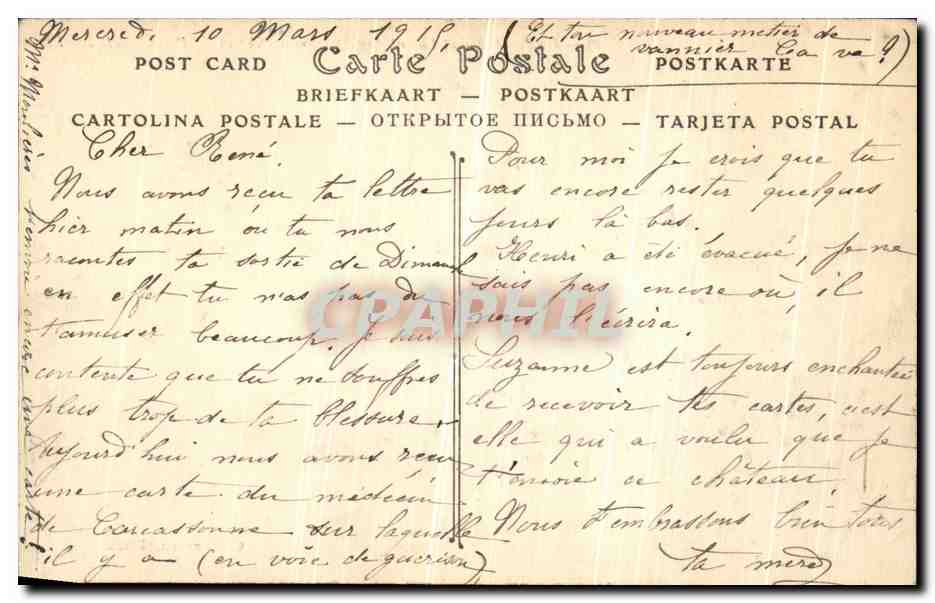 Mercredi 10 Mars 1915,
(Et ton nouveau métier de
vannier Ca va ?)
POST CARD Carte Postale POSTKARTE
BRIEFKAART — POSTKAART
CARTOLINA POSTALE — ОТКРЫТОЕ ПИСЬМО — TARJETA POSTAL
Cher René.
Nous avons reçu ta lettre
hier matin où tu nous
racontes ta sortie de Dimanche
en effet tu n'as pas dû
t'amuser beaucoup. Je suis
contente que tu ne souffres
plus trop de ta blessure.
Aujourd'hui nous avons reçu
une carte du médecin
de Carcassonne sur laquelle
il y a (en voie de guérison)
Pour moi je crois que tu
vas encore rester quelques
jours là bas.
Henri a été évacué, je ne
sais pas encore où, il
nous l'écrira.
Suzanne est toujours enchantée
de recevoir tes cartes, c'est
elle qui a voulu que je
t'envoie ce château.
Nous t'embrassons bien tous
ta mère
Mr encore une carte !
CPAPHIL